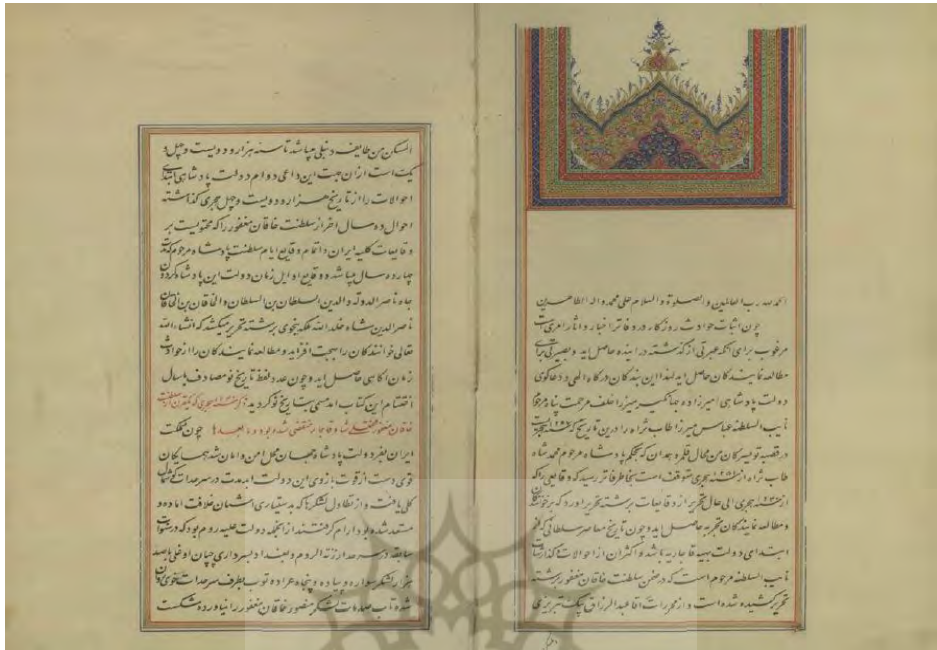 الحمد لله رب العالمین و الصلوة و السلام علی محمد و اله الطاهرین
چون اثبات حوادث روزکار در دفاتر اخبار و اثار امریست
مرغوب برای آنکه عبرتی از کذشته در اینده حاصل اید و بصیرتی برای
مطالعه نمایندکان حاصل اید لهذا این بندکان درکاه الهی و دعاکوی
دولت پادشاهی امیرزاده جهانکیر میرزا خلف مرحمت پناه مرحوم
نایب السلطنه عباس میرزا طاب ثراه را درین تاریخ که هجریست
در قصبه تویسرکان من محال قلمرو همدان که بحکم پادشاه مرحوم محمد شاه
طاب ثراه از هجری متوقف است بخاطر فاتر رسید که وقایعی را که
از هجری الی حال تحریر از وقایعات برشته تحریر اورد که بر خوانندکان
و مطالعه نمایندکان تجربه حاصل اید و چون تاریخ معاصر سلطانی که از
ابتدای دولت بهیه قاجاریه باشد و اکثر ان از احوالات کذارشات
نایب السلطنه مرحوم است که در ضمن سلطنت خاقان مغفور برشته
تحریر کشیده شده است و از محررات آقا عبدالرزاق بیک تبریزی
المسکن من طایفه دنبلی میباشد تا سنه هزار و دویست و چهل و
یک است ازان جهت این داعی دوام دولت پادشاهی ابتدای
احوالات را از تاریخ هزار و دویست و چهل هجری کذاشته
احوال ده سال اخر از سلطنت خاقان مغفور را که محتویست بر
وقایعات کلیه ایران و اتمام وقایع ایام سلطنت پادشاه مرحوم که مدت
چهارده سال میباشد و وقایع اوایل زمان دولت این پادشاه کردون
جاه ناصر الدوله و الدین السلطان بن السلطان و الخاقان بن الخاقان
ناصر الدین شاه خلد الله ملکه بنحوی برشته تحریر میکشد که انشاء الله
تعالی خوانندکان را بهجت افزاید و مطالعه نمایندکان را از حوادث
زمان اکاهی حاصل اید و چون عدد لفظ تاریخ نو مصادف با سال
اختتام این کتاب امد مسمی بتاریخ نو کردید
خاقان مغفور فتحعلی شاه قاجار منقضی شده بود و ما بعدها چون مملکت
ایران بفر دولت پادشاه جهان محل امن و امان شد همسایکان
قوی دست از قوت بازوی این دولت ابد مدت در سرحدات کمال
کلی یافت و از تطاول لشکرها که بدستیاری استان خلافت اماده و
مستعد شده بود ارام کرفتند از انجمله دولت علیه روم بود که در سنوات
سابقه در سرحد ارزنة الروم و بغداد بسرداری چپان اوغلی با صد
هزار لشکر سواره و پیاده و پنجاه عراده توپ بطرف سرحدات خوی روان
شده تاب صدمات لشکر منصور خاقان مغفور را نیاورده شکست